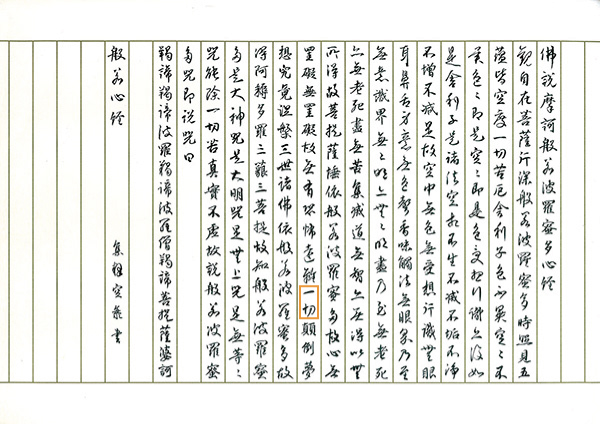 佛說摩訶般若波羅蜜多心經
觀自在菩薩行深般若波羅蜜多時照見五
蘊皆空度一切苦厄舍利子色不異空〻不
異色〻即是空〻即是色受想行識亦復如
是舍利子是諸法空相不生不滅不垢不淨
不增不減是故空中無色無受想行識無眼
耳鼻舌身意無色聲香味觸法無眼界乃至
無意識界無〻明亦無〻明盡乃至無老死
亦無老死盡無苦集滅道無智亦無得以無
所得故菩提薩埵依般若波羅蜜多故心無
罣礙無罣礙故無有恐怖遠離一切顛倒夢
想究竟涅槃三世諸佛依般若波羅蜜多故
得阿耨多羅三藐三菩提故知般若波羅蜜
多是大神咒是大明咒是無上咒是無等〻
咒能除一切苦真實不虛故說般若波羅蜜
多咒即說咒曰
羯諦羯諦波羅羯諦波羅僧羯諦菩提薩婆訶
般若心經
書